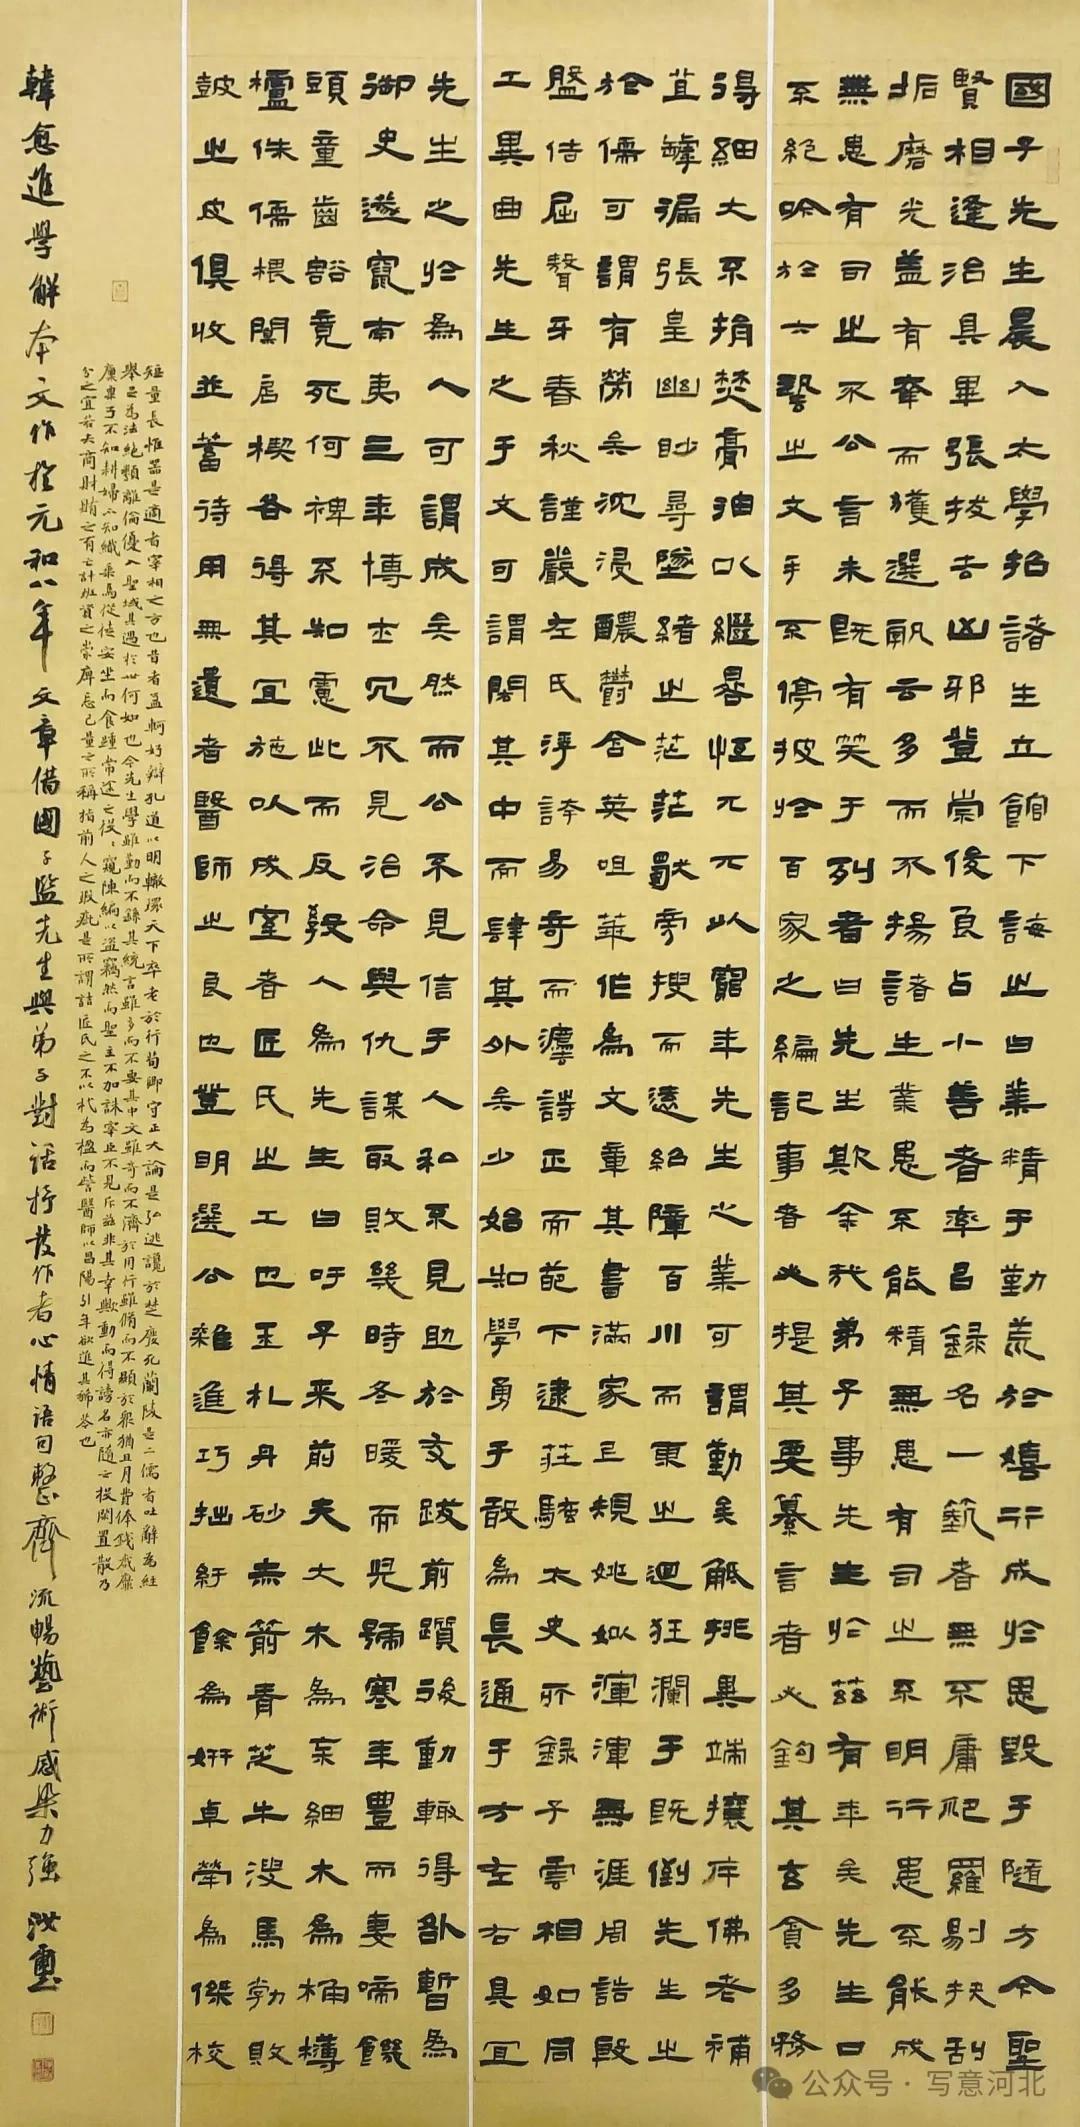 國子先生晨入太學招諸生立館下誨之曰業精于勤荒於嬉行成於思毀于隨方今聖
賢相逢治具畢張拔去凶邪登崇俊良占小善者率以錄名一藝者無不庸爬羅剔抉刮
垢磨光蓋有幸而獲選孰云多而不揚諸生業患不能精無患有司之不明行患不能成
無患有司之不公言未既有笑于列者曰先生欺余哉弟子事先生於茲有年矣先生口
不絕吟於六藝之文手不停披於百家之編記事者必提其要纂言者必鉤其玄貪多務
得細大不捐焚膏油以繼晷恆兀兀以窮年先生之業可謂勤矣觝排異端攘斥佛老補
苴罅漏張皇幽眇尋墜緒之茫茫獨旁搜而遠紹障百川而東之迴狂瀾于既倒先生之
於儒可謂有勞矣沈浸醲鬱含英咀華作為文章其書滿家上規姚姒渾渾無涯周誥殷
盤佶屈聱牙春秋謹嚴左氏浮誇易奇而灋詩正而葩下逮莊騷太史所錄子雲相如同
工異曲先生之于文可謂閎其中而肆其外矣少始知學勇于敢為長通于方左右具宜
先生之於為人可謂成矣然而公不見信于人私不見助於友跋前躓後動輒得咎暫為
御史遂竄南夷三年博士冗不見治命與仇謀取敗幾時冬暖而兒號寒年豐而妻啼饑
頭童齒豁竟死何裨不知慮此而反教人為先生曰吁子來前夫大木為杗細木為桷欂
櫨侏儒椳闑扂楔各得其宜施以成室者匠氏之工也玉札丹砂赤箭青芝牛溲馬勃敗
鼓之皮俱收並蓄待用無遺者醫師之良也登明選公雜進巧拙紆餘為妍卓犖為傑校
短量長惟器是適者宰相之方也昔者孟軻好辯孔道以明轍環天下卒老於行荀卿守正大論是弘逃讒於楚廢死蘭陵是二儒者吐辭為經
舉足為法絕類離倫優入聖域其遇於世何如也今先生學雖勤而不繇其統言雖多而不要其中文雖奇而不濟於用行雖脩而不顯於眾猶且月費俸錢歲靡
廩粟子不知耕婦不知織乘馬從徒安坐而食踵常途之役役窺陳編以盜竊然而聖主不加誅宰臣不見斥茲非其幸歟動而得謗名亦隨之投閑置散乃
分之宜若夫商財賄之有亡計班資之崇庳忘己量之所稱指前人之瑕疵是所謂詰匠氏之不以杙為楹而訾醫師以昌陽引年欲進其豨苓也
韓愈進學解本文作於元和八年文章借國子監先生與弟子對話抒發作者心情語句整齊流暢藝術感染力強 汝璽
公众号·写意河北